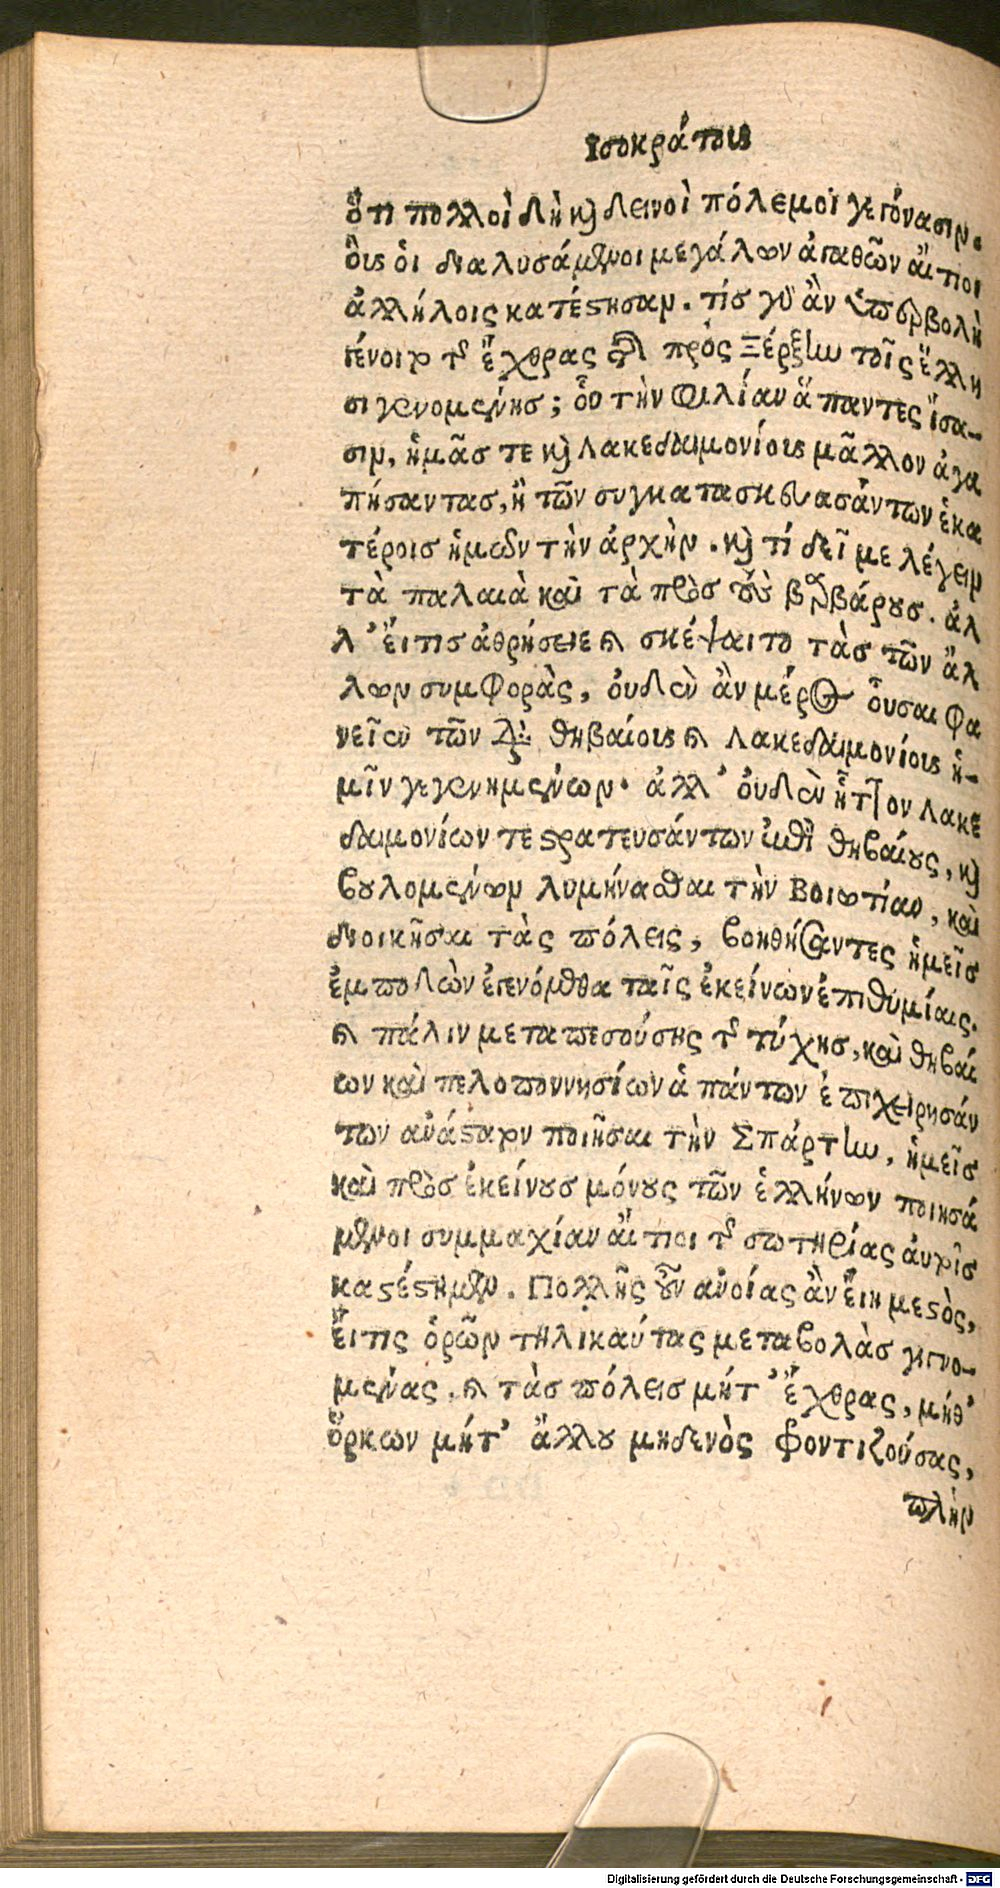 Ισοκράτους
ὅτι πολλοὶ δὴ καὶ δεινοὶ πόλεμοι γεγόνασιν.
οὓς οἱ διαλυσάμενοι μεγάλων ἀγαθῶν αἴτιοι
ἀλλήλοις κατέστησαν. τίς γὰρ ἂν ὑπερβολὴ
γένοιτο τῆς ἔχθρας τῆς πρὸς Ξέρξην τοῖς ἕλλη
σι γενομένης; οὗ τὴν φιλίαν ἅπαντες ἴσα-
σιν, ἡμᾶς τε καὶ Λακεδαιμονίους μᾶλλον ἀγα
πήσαντας, ἢ τῶν συγκατασκευασάντων ἑκα
τέροις ἡμῶν τὴν ἀρχήν. καὶ τί δεῖ με λέγειν
τὰ παλαιὰ καὶ τὰ πρὸς τοὺς βαρβάρους. ἀλ
λ' εἴ τις ἀθρήσειε καὶ σκέψαιτο τὰς τῶν ἄλ
λων συμφορὰς, οὐδὲν ἂν μέρος οὖσαι φα
νεῖεν τῶν διὰ θηβαίους καὶ Λακεδαιμονίους ἡ-
μῖν γεγενημένων. ἀλλ' οὐδὲν ἧττον Λακε
δαιμονίων τε στρατευσάντων ἐπὶ θηβαίους, καὶ
βουλομένων λυμήνασθαι τὴν Βοιωτίαν, καὶ
διοικῆσαι τὰς πόλεις, βοηθήσαντες ἡμεῖς
ἐμποδὼν ἐγενόμεθα ταῖς ἐκείνων ἐπιθυμίαις.
καὶ πάλιν μεταπεσούσης τῆς τύχης, καὶ θηβαί
ων καὶ πελοποννησίων ἁπάντων ἐπιχειρησάν
των ἀνάστατον ποιῆσαι τὴν Σπάρτην, ἡμεῖς
καὶ πρὸς ἐκείνους μόνους τῶν ἑλλήνων ποιησά
μενοι συμμαχίαν αἴτιοι τῆς σωτηρίας αὐτοῖς
κατέστημεν. Πολλῆς οὖν ἀνοίας ἂν εἴη μεστὸς,
εἴ τις ὁρῶν τηλικαύτας μεταβολὰς γιγνο-
μένας. καὶ τὰς πόλεις μήτ' ἔχθρας, μήθ'
ὅρκων μήτ' ἄλλου μηδενὸς φροντιζούσας,
πλὴν
Digitalisierung gefördert durch die Deutsche Forschungsgemeinschaft - DFG